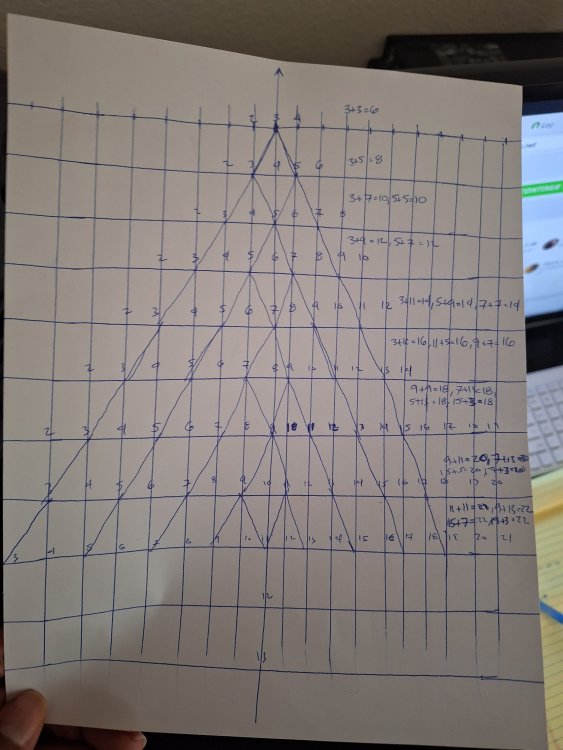 3+3=6
2 3 4
2 3 4 5 6 3+5=8
2 3 4 5 6 7 8 3+7=10, 5+5=10
2 3 4 5 6 7 8 9 10 3+9=12, 5+7=12
2 3 4 5 6 7 8 9 10 11 12 3+11=14, 5+9=14, 7+7=14
2 3 4 5 6 7 8 9 10 11 12 13 14 11+5=16, 9+7=16
9+9=18, 7+11=18,
5+13=18, 15+3=18
2 3 4 5 6 7 8 9 10 11 12 13 14 15 16 17
9+11=20, 7+13=20
15+5=20,
2 5 6 7 8 9 10 11 12 13 14 15 16 17 18 19 20
11+11=22, 9+13=22
15+7=22, 19+3=22
3 4 5 6 7 8 9 10 11 12 13 14 15 16 17 18 19 20 21
12
13
CONTINUE